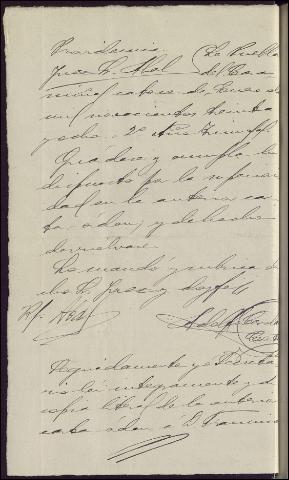 Providencia
Juez Sr. Abal La Puebla
del Cara
miñal catorce de Enero de
mil novecientos treinta
y ocho. 2º Año Triunfal
Guárdese y cumpla lo
dispuesto por la superiori
dad en la anterior car
ta-órden, y de hecho
devuelvase.
Lo mandó y rubrica
dho Sr. Juez y doy fe
R/. Abal
Adolfo
Seguidamente yo Secreta
rio leí integramente y dí
copia literal de la anterior
carta órden á D. Francisco